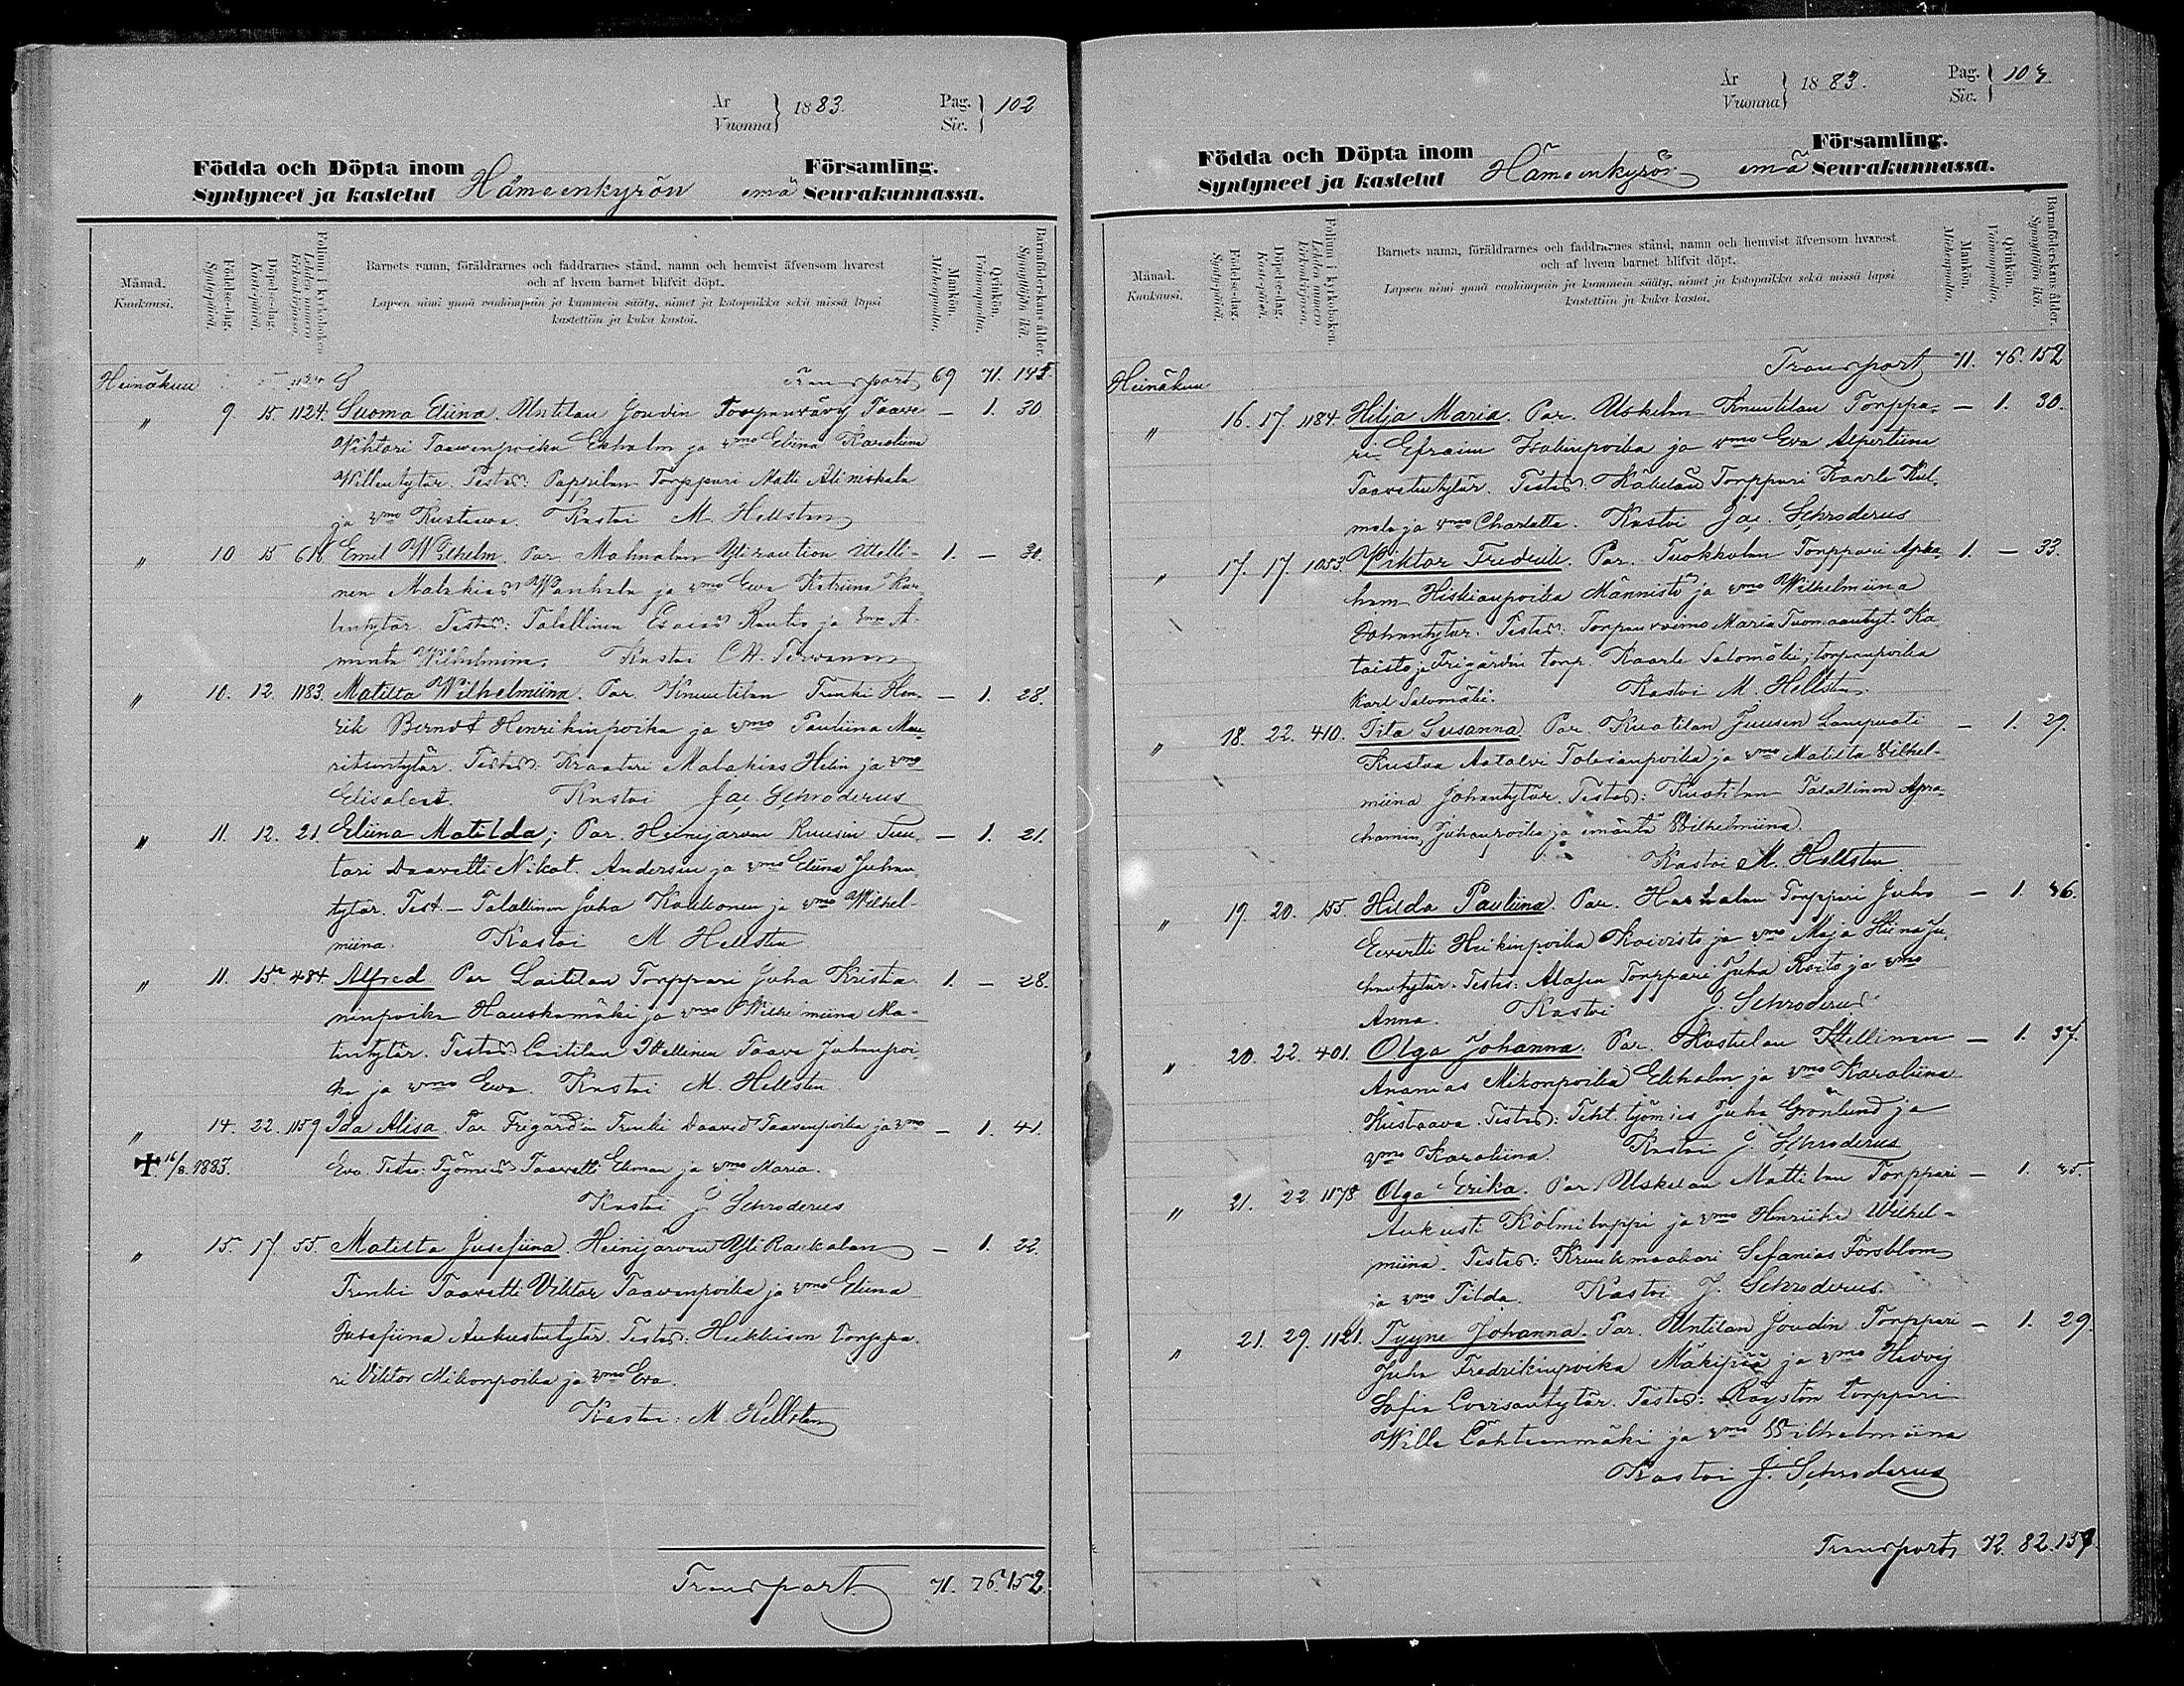 År
Vuonna } 1883. Pag.
Siv. } 102
Födda och Döpta inom Församling.
Syntyneet ja kastetut Hämeenkyrön emä Seurakunnassa.
Månad.
Kuukausi.
Födelse-dag.
Syntypäivä.
Döpelse-dag.
Kastepäivä.
Folium i kyrkoboken.
Lehden numero
Kirkonkirjassa.
Barnets namn, föräldrarnes och faddrarnes stånd, namn och hemvist äfvensom hvarest
och af hvem barnet blifvit döpt.
Lapsen nimi ynnä vanhimpain ja kummein sääty, nimet ja kotopaikka sekä missä lapsi
kastettiin ja kuka kastoi.
Mankön.
Miehenpuolia.
Qvinkön.
Vaimonpuolia.
Barnaföderskans ålder.
Synnyttäjän ikä.
Heinäkuu Transport 69 71. 145
" 9. 15. 1124. Suoma Eliina. Untilan Joudin Taave — 1. 30
Wihtori Taavenpoika Ekholm ja vmo Eliina Karoliina
Willentytär. Testes: Pappilan Torppari Matti Aliniskala
ja vmo Kustaava. Kastoi M. Hellsten
" 10 15 618. Emil Wilhelm. Par Mahnalan Yliraution Ittelli- 1. — 30.
nen Malakias Wanhala ja vmo Ewa Katriina Kar
lentytär. Testes: Talollinen Esaias Rautio ja vmo A-
manta Wilhelmina. Kastoi
" 10. 12. 1183. Matilta Wilhelmiina. Par. Knuutilan Trenki Hen- — 1. 28.
rik Berndt Henrikinpoika ja vmo Pauliina Mau
ritsintytär. Testes: Kraatari Malakias Helin ja vmo
Elisabet. Kastoi Jac. Schroderus
" 11. 12. 21. Eliina Matilda; Par. Heinijärven Ruusin Tuu- — 1. 21.
tari Daavetti Nikol. Andersin ja vmo Eliina Juhan
tytär. Test. – Talollinen Juha Kaukonen ja vmo Wilhel-
miina. Kastoi M Hellsten
" 11. 15. 484. Alfred Par Laitilan Torppari Juha Kristia- 1. — 28.
ninpoika Hauskamäki ja vmo Wilhelmiina Ma-
tintytär. Testes Laitilan Ittellinen Taava Juhanpoi
ka ja vmo Ewa. Kastoi M. Hellsten
" 14. 22. 1159 Ida Alisa. Par Frigårdin Trenki Daaved Taavenpoika ja vmo — 1. 41.
✝ 16/8. 1883. Eva. Testes: Työmies Taavetti Ekman ja vmo Maria.
Kastoi J. Schroderus
" 15. 17. 55. Matilta Jusefiina. Heinijärven Yli Raukolan — 1. 22.
Trenki Taavetti Viktor Taavenpoika ja vmo Eliina
Josefiina Aukustintytär. Testes: Heikkisen Torppa-
ri Viktor Mikonpoika ja vmo Eva.
Kastoi: M. Hellsten
Transport 71. 76. 152
År
Vuonna } 1883. Pag.
Siv. } 103
Födda och Döpta inom Församling.
Syntyneet ja kastetut Hämeenkyrön emä Seurakunnassa.
Månad.
Kuukausi.
Födelse-dag.
Syntypäivä.
Döpelse-dag.
Kastepäivä.
Folium i kyrkoboken.
Lehden numero
Kirkonkirjassa.
Barnets namn, föräldrarnes och faddrarnes stånd, namn och hemvist äfvensom hvarest
och af hvem barnet blifvit döpt.
Lapsen nimi ynnä vanhimpain ja kummein sääty, nimet ja kotopaikka sekä missä lapsi
kastettiin ja kuka kastoi.
Mankön.
Miehenpuolia.
Qvinkön.
Vaimonpuolia.
Barnaföderskans ålder.
Synnyttäjän ikä.
Heinäkuu Transport 71. 76. 152
" 16. 17. 1184. Hilja Maria. Par. Uskelan Knuutilan Torppa- — 1. 30.
ri Efraim Isakinpoika ja vmo Eva Alpertiina
Taavetintytär. Testes: Torppari Kaarle Kul-
mala ja vmo Charlotta. Kastoi Jac. Schroderus
" 17. 17. 1053. Viktor Fredrik. Par. Tuokkolan Torppari Apra- 1. — 33.
ham Hiskianpoika Männistö ja vmo Wilhelmiina
Johantytär. Testes: Torpan vaimo Maria Tuomaantyt. Ka
taisto ja Frigårdin torp. Kaarle Salomäki; torpanpoika
Karl Salomäki. Kastoi M. Hellsten.
" 18. 22. 410. Tita Susanna Par. Kuotilan Juusen Lampuoti — 1. 29.
Kustaa Aatolvi Tobianpoika ja vmo Matilta Vilhel-
miina Johantytär. Testes: Kuotilan Talollinen Apra-
hamin, Juhanpoika ja emäntä Wilhelmiina.
Kastoi M. Hellsten
" 19. 20. 155. Hilda Pauliina. Par. Torppari Juho — 1. 46.
Eevertti Heikinpoika Koivisto ja vmo Maja Stiina Ju-
hantytär. Testes: Alajen Torppari Juha Roito ja vmo
Anna. Kastoi J. Schroderus
" 20. 22. 401. Olga Johanna. Par. Kostulan Ittellinen — 1. 37.
Ananias Mikonpoika Ekholm ja vmo Karoliina
Kustaava. Testes: Teht. työmies Juha Grönlund ja
vmo Karoliina. Kastoi J. Schroderus
" 21. 22 1178. Olga Erika. Par. Uskelan Mattilan Torppari — 1. 35
Aukusti Kolmiloppi ja vmo Henriika Wilhel-
miina. Testes: Kruukmaakari Sefanias Forsblom
ja vmo Tilda. Kastoi J. Schroderus.
" 21. 29. 1121. Tyyne Johanna. Par. Untilan Joudin Torppari — 1. 29.
Juha Fredrikinpoika Mäkipää ja vmo Hedvig
Sofia Lovisantytär. Testes: Röystön torppari
Wille Lähteenmäki ja vmo Wilhelmiina
Kastoi J. Schroderus
Transport 72. 82. 159